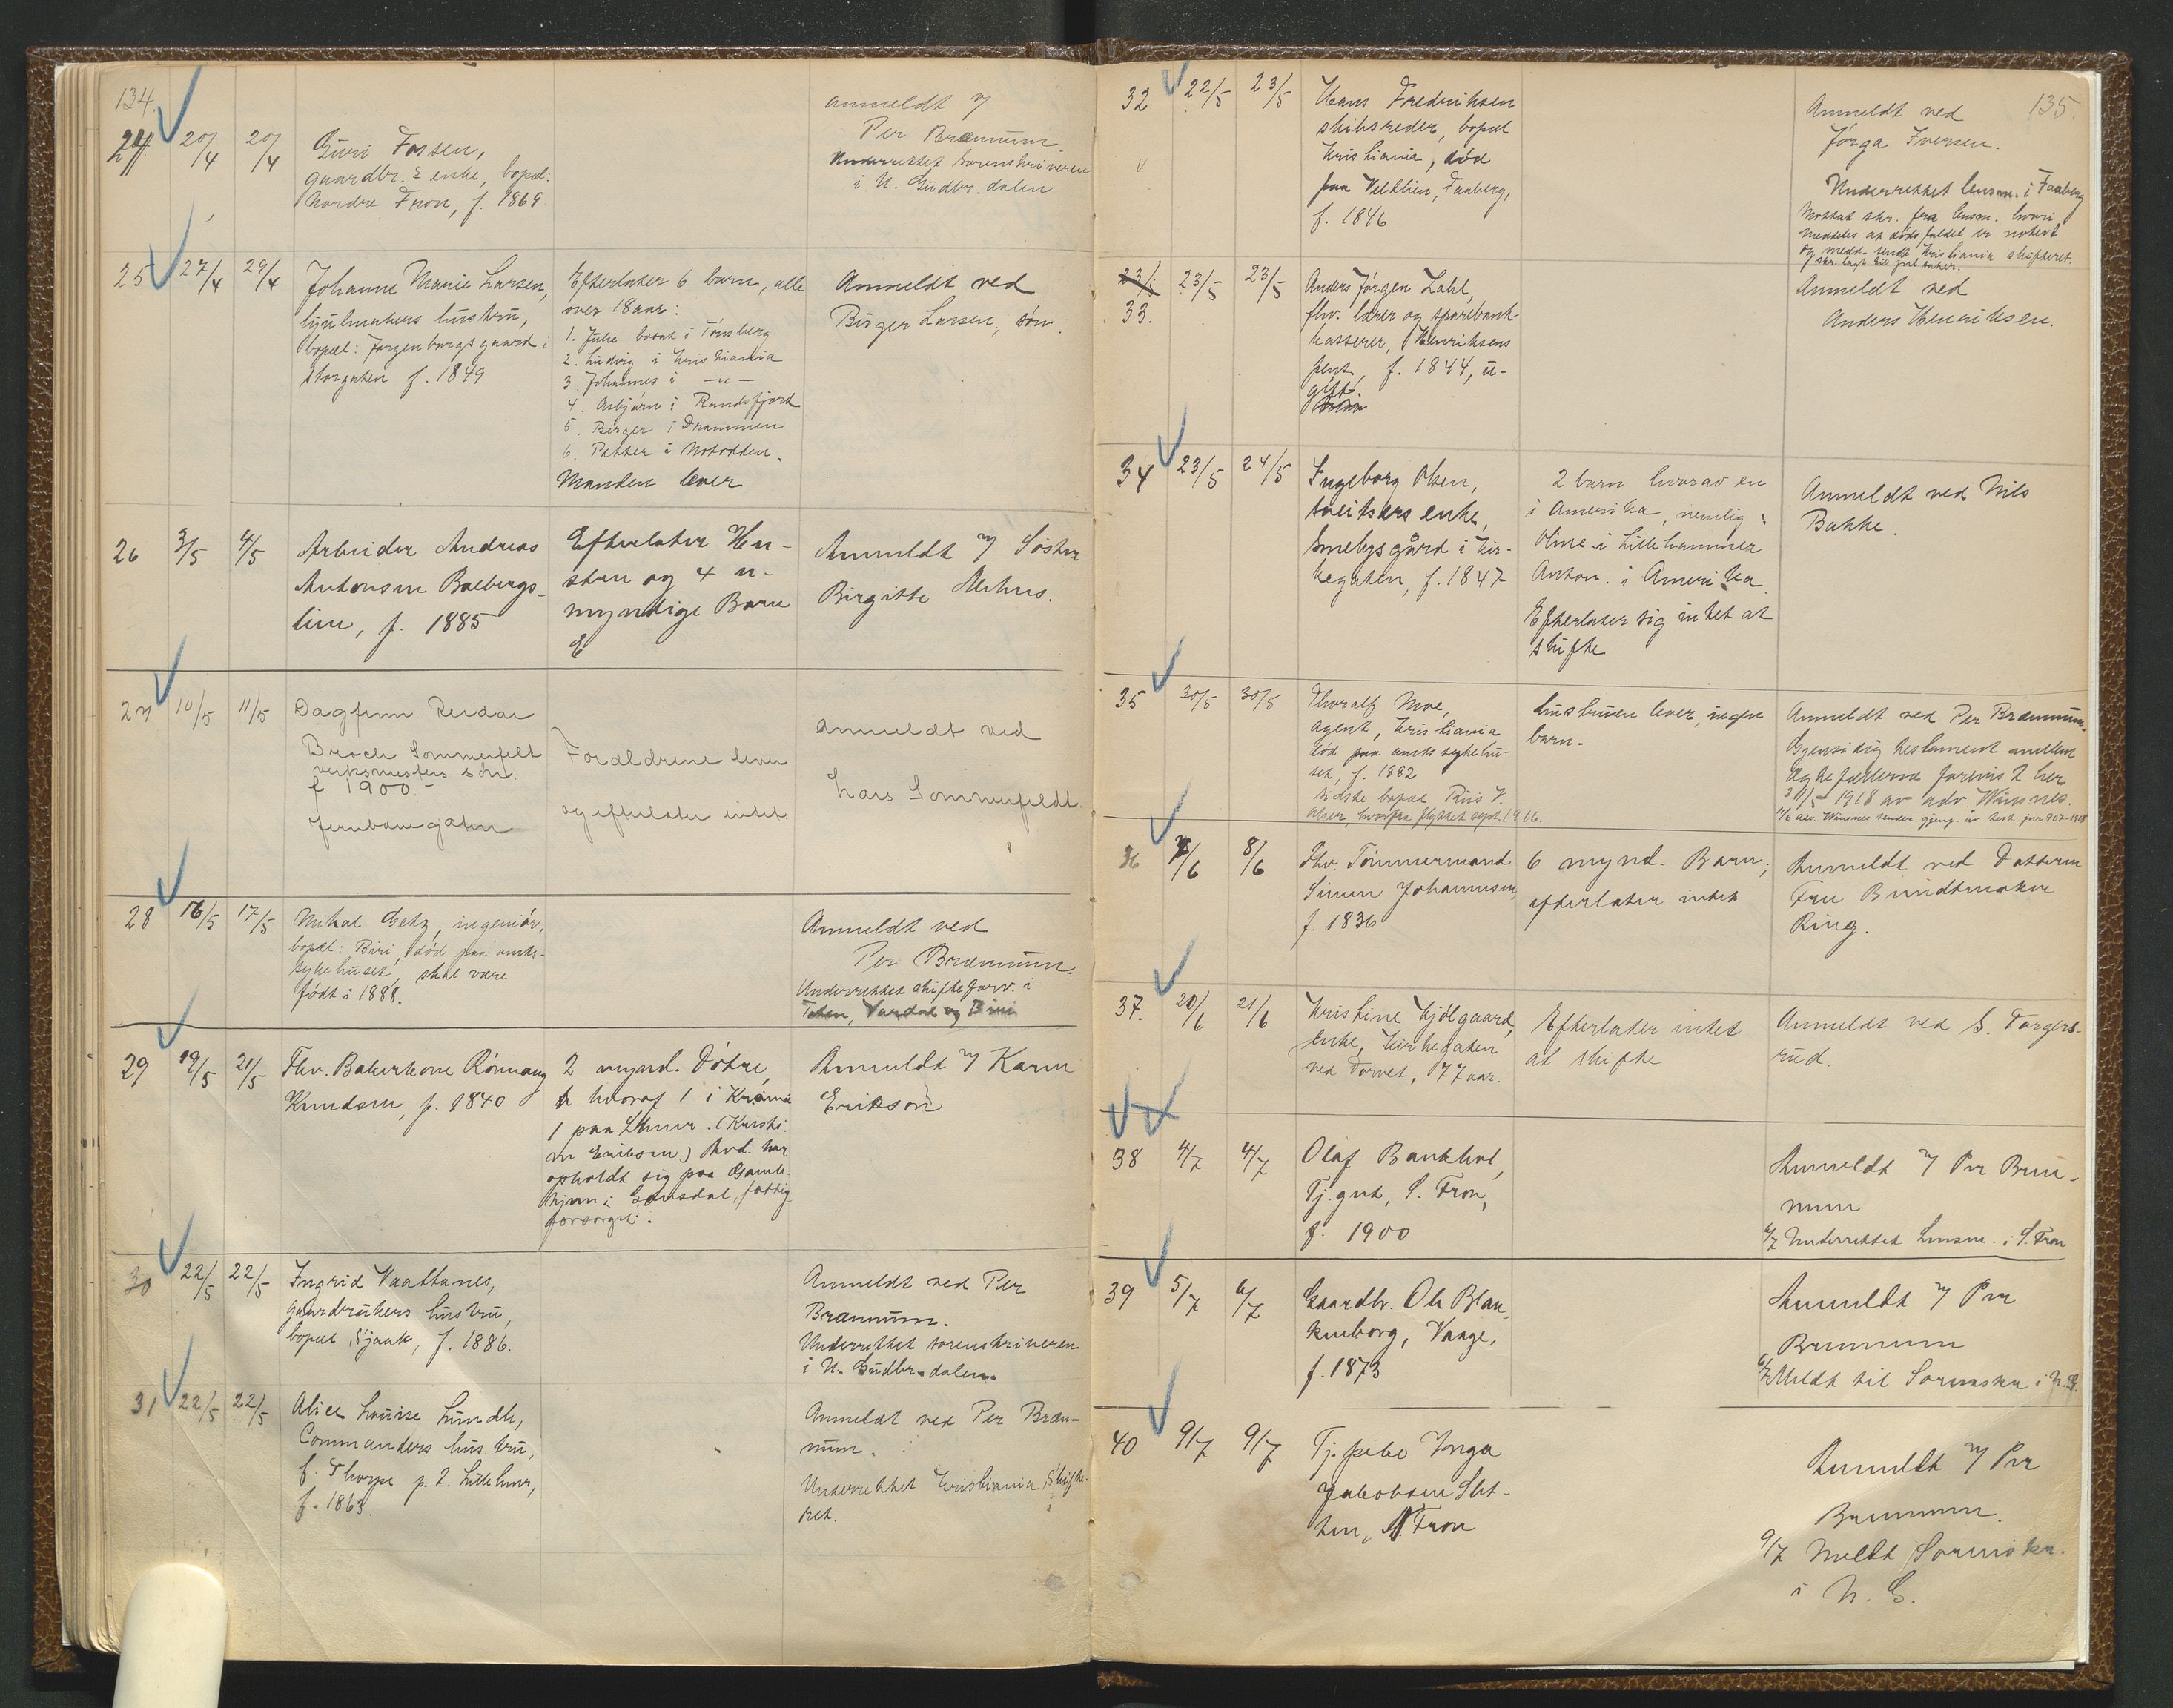 134.
24 20/4 20/4
Guri Fossen,
gaardbr.s enke, bopæl:
Nordre Fron, f. 1869
anmeldt v/
Per Brænnum
Underrettet sorenskriveren
i N. Gudbr. dalen
25 27/4 29/4
Johanne Marie Larsen,
hjulmakers hustru,
bopæl: Jørgenborgs gaard i
Storgaten f. 1849
Efterlater 6 barn, alle
over 18 aar:
1. Julie bosat i Tønsberg
2. Ludvig i Kristiania
3. Johannes i —"—
4. Asbjørn i Randsfjord
5. Birger i Drammen
6. Petter i Notodden.
Manden lever
Anmeldt ved
Birger Larsen, søn.
26 3/5 4/5
Arbeider Andreas
Antonsen Balbergs-
lien, f. 1885
Efterlater Hu-
stru og 4 u-
myndige Barn
Anmeldt v/ Søster
Birgitte
27 10/5 11/5
Dagfinn Reidar
Broch Sommerfelt
verksmesters søn.
f. 1900.-
Jernbanegaten
Forældrene lever
og efterlater intet.
anmeldt ved
Lars Sommerfeldt.
28 16/5 17/5
Mikal Getz, ingeniør,
bopæl: Biri, død paa amts-
sykehuset, skal være
født i 1888.
Anmeldt ved
Per Brænnum.
Underrettet skifteforv. i
Toten, Vardal og Biri
29 19/5 21/5
Fhv. Bakerkone Rønnaug
Knudsen, f. 1840
2 mynd. Døtre,
hvoraf 1 i Kr.ania
1 paa Lhmr. (Kristi-
ne Eriksen) Avd. har
opholdt sig paa Gamle-
hjem i Gausdal, fattig-
forsørget.
Anmeldt v/ Karen
Erikson
30 22/5 22/5
Ingrid Vaattanes,
gaardbrukers hustru,
bopæl Skjaak, f. 1886.
Anmeldt ved Per
Brænnum.
Underrettet sorenskriveren
i N. Gudbr.dalen.
31 22/5 22/5
Alice Louise Lundh,
Commanders hustru,
f. Thorpe p. t. Lillehmr,
f. 1863.
Anmeldt ved Per Bræn-
num.
Underrettet Kristiania Skifte-
ret.
135.
32 22/5 23/5
Hans Fredriksen
skibsreder, bopæl
Kristiania, død
paa Vældlien, Faaberg,
f. 1846
Anmeldt ved
Jørga Iversen.
Underrettet lensm. i Faaberg
Mottat skr. fra lensm. hvori
meddeles at dødsfaldet er notert
og medd. sendt Kristiania skifteret.
33. 23/5 23/5
Anders Jørgen Lahl,
fhv. lærer og sparebank-
kasserer, Henriksens
pens., f. 1844, u-
gift.
Anmeldt ved
Anders Henriksen.
34 23/5 24/5
Ingeborg Olsen,
sveitsers enke,
Smebys gård i Kir-
kegaten, f. 1847
2 barn hvorav en
i Amerika, nemlig:
Oline i Lillehammer
Anton i Amerika.
Efterlater sig intet at
skifte
Anmeldt ved Nils
Bakke.
35 30/5 30/5
Thoralf Moe,
agent, Kristiania
død paa amtssykehu-
set, f. 1882
sidste bopæl Riis V.
Aker, hvorfra flyttet sept. 1916.
hustruen lever, ingen
barn.
Anmeldt ved Per Brænnum.
Gjensidig testament mellem
ægtefællerne forevist her
31/5 1918 av adv. Winsnes.
11/6 adv. Winsnes sender gjenp. av test. jnr 907-1918
36 7/6 8/6
Fhv. Tømmermand
Simen Johannesen,
f. 1836
6 mynd. Barn;
efterlater intet
Anmeldt ved Datteren
Fru Bundtmaker
Ring.
37. 20/6 21/6
Kristine Kjølgaard,
enke, Kirkegaten
ved Torvet, 77 aar.
Efterlater intet
at skifte
Anmeldt ved S. Torgers-
rud.
38 4/7 4/7
Olaf Bankhol,
Tj.gut, S. Fron,
f. 1900
Anmeldt v/ Per Bræn-
num
4/7 Underrettet Lensm. i S. Fron
39 5/7 6/7
Gaardbr. Ole Blan-
kenborg, Vaage,
f. 1873
Anmeldt v/ Per
Brænnum
6/7 Meldt til Sorenskr. i N. G.
40 9/7 9/7
Tj.pike Inga
Jakobsen Slet-
ten, N. Fron
Anmeldt v/ Per
Brænnum.
9/7 Meldt Sorenskr.
i N. G.